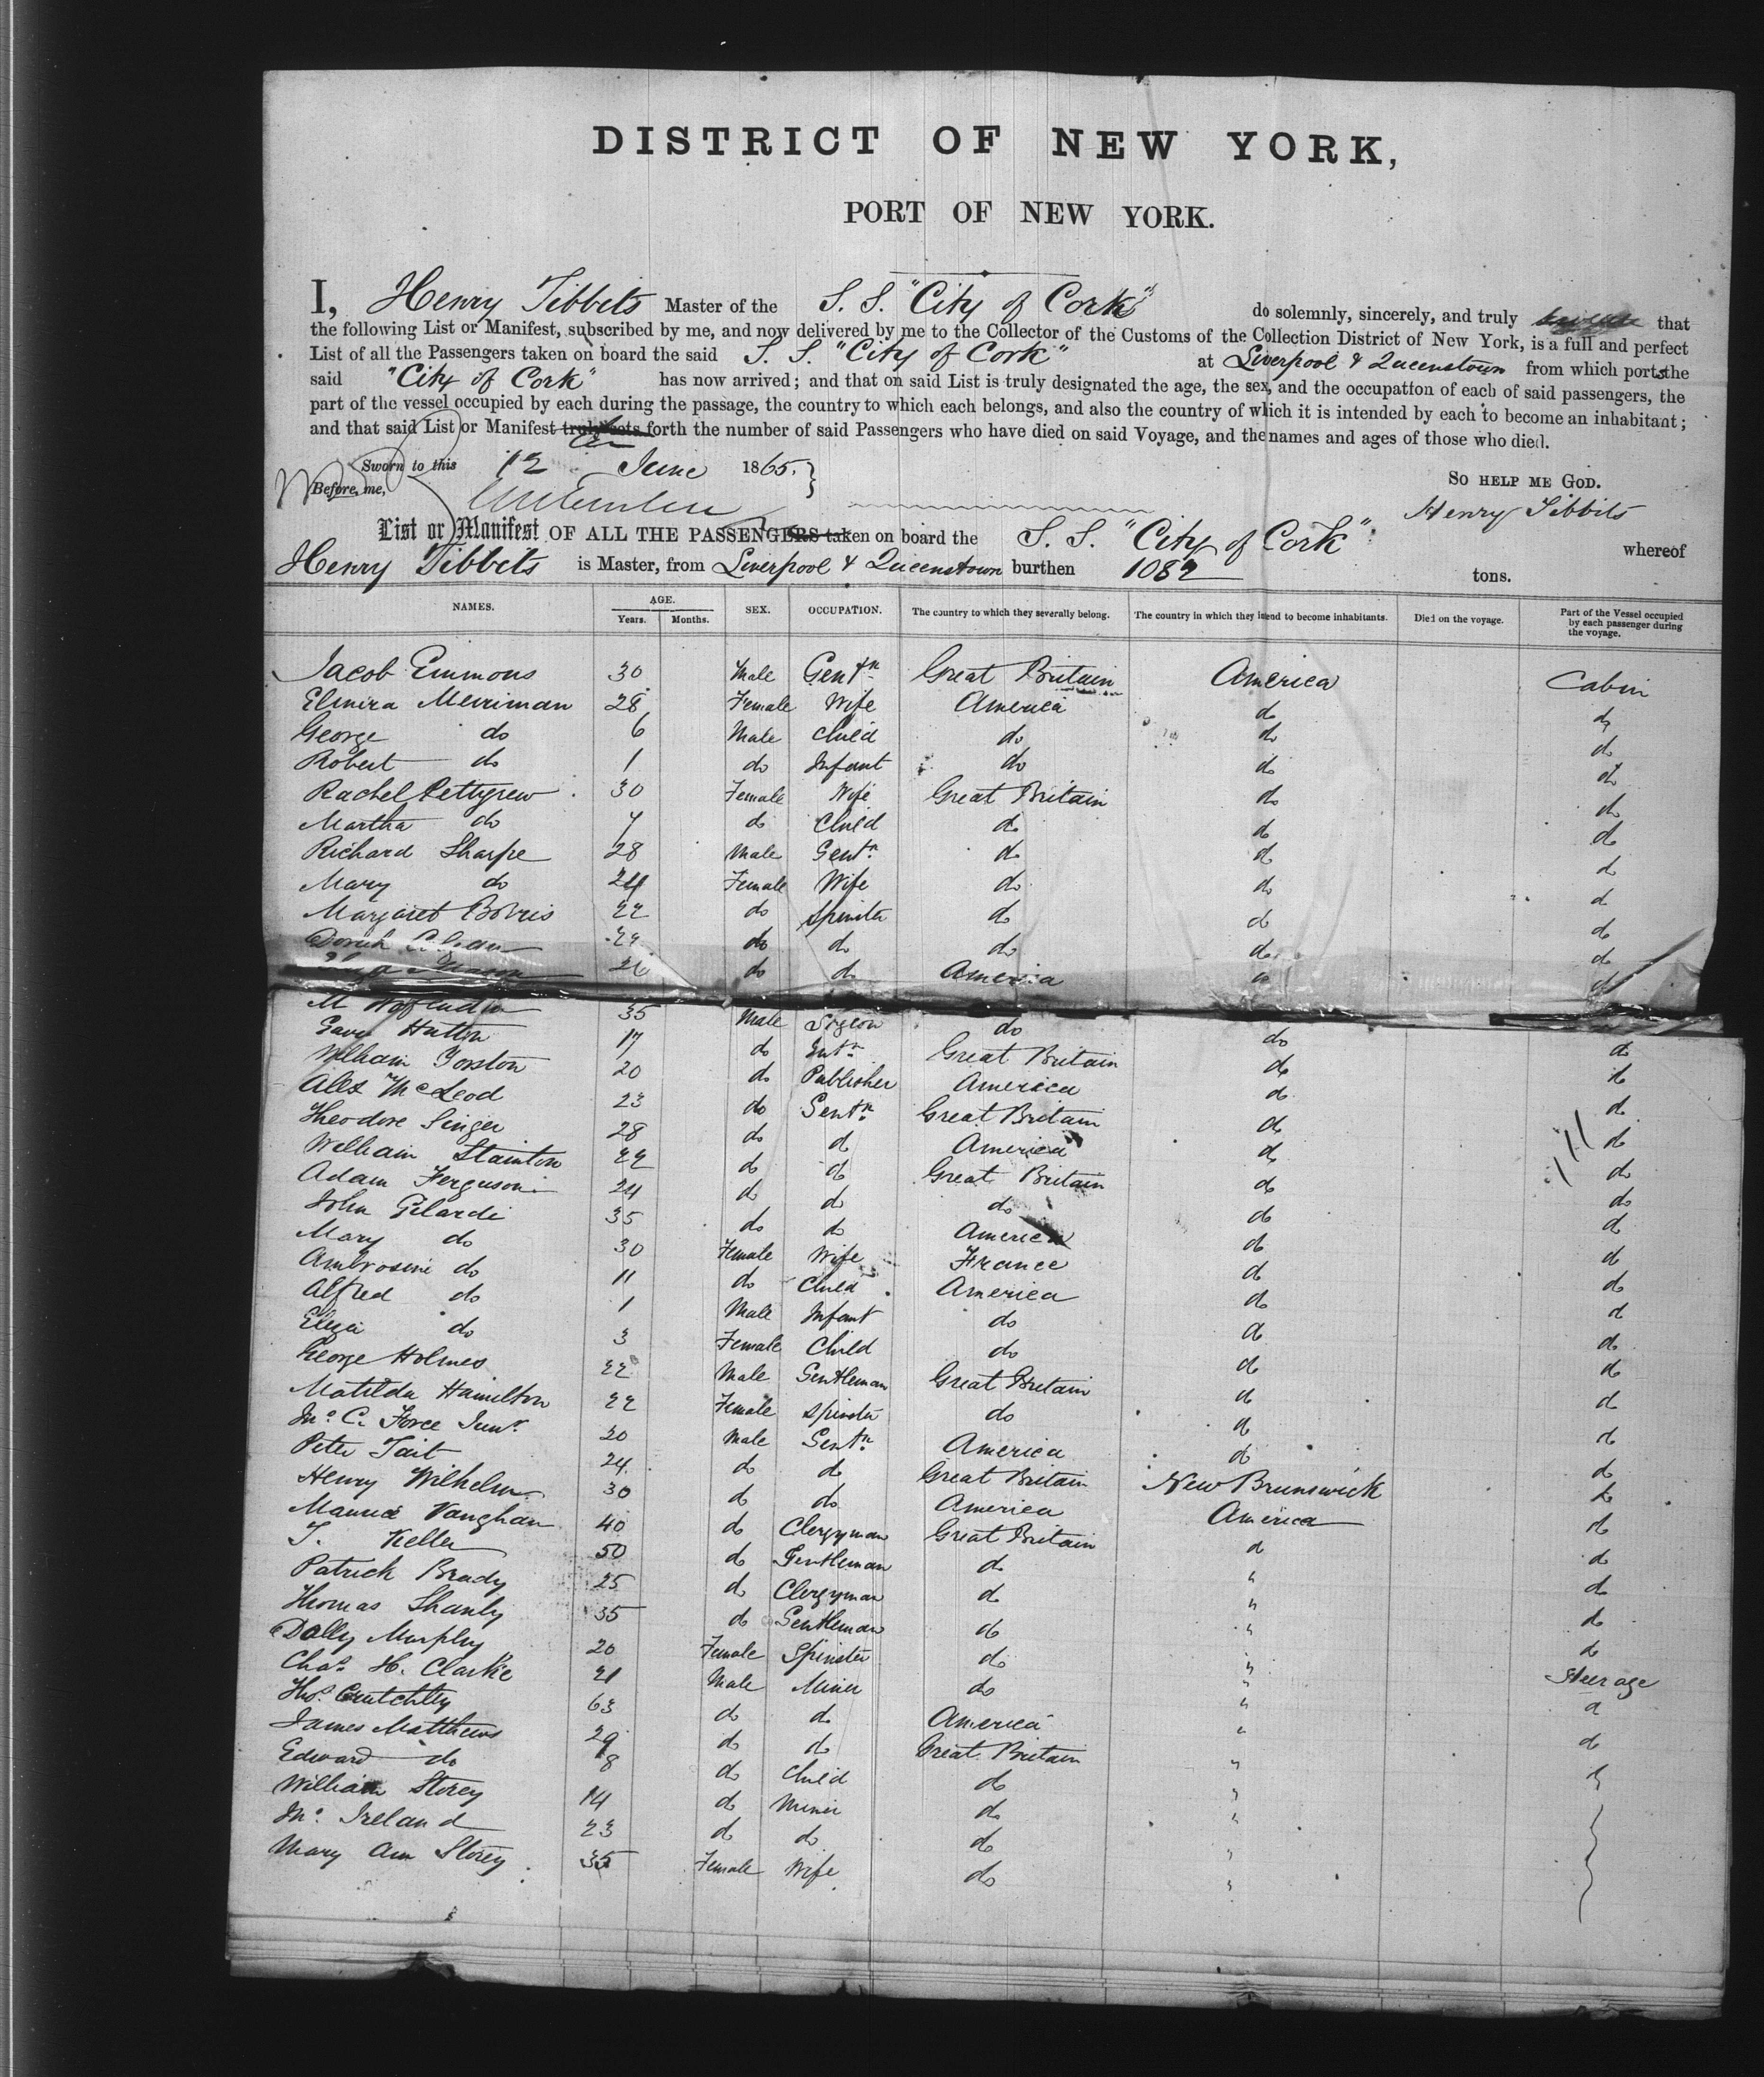 DISTRICT OF NEW YORK,
PORT OF NEW YORK.
I, Henry Tibbits Master of the S. S. "City of Cork" do solemnly, sincerely, and truly that
the following List or Manifest, subscribed by me, and now delivered by me to the Collector of the Customs of the Collection District of New York, is a full and perfect
List of all the Passengers taken on board the said S. S. "City of Cork" at Liverpool & Queenstown from which ports the
said "City of Cork" has now arrived; and that on said List is truly designated the age, the sex, and the occupation of each of said passengers, the
part of the vessel occupied by each during the passage, the country to which each belongs, and also the country of which it is intended by each to become an inhabitant;
and that said List or Manifest truly sets forth the number of said Passengers who have died on said Voyage, and the names and ages of those who died.
Sworn to this 12 June 1865. So HELP ME GOD.
Before me, Henry Tibbits
List or Manifest OF ALL THE PASSENGERS taken on board the S. S. "City of Cork" whereof
Henry Tibbits is Master, from Liverpool & Queenstown burthen 1082 tons.
NAMES. AGE. Years. Months. SEX. OCCUPATION. The country to which they severally belong. The country in which they intend to become inhabitants. Died on the voyage. Part of the Vessel occupied by each passenger during the voyage.
Jacob Emmons 30 Male Gentn Great Britain America Cabin
Elmira Merriman 28 Female Wife America do do
George do 6 Male Child do do do
Robert do 1 do Infant do do do
Rachel Pettygrew 30 Female Wife Great Britain do do
Martha do 7 do Child do do do
Richard Sharpe 28 Male Gentn do do do
Mary do 24 Female Wife do do do
Margaret 22 do Spinster do do do
22 do do do do do
26 do do America do do
M 35 Male do do do
Hutton 17 do Great Britain do do
William Forston 20 do Publisher America do do
Alex McLeod 23 do Gentn Great Britain do do
Theodore Singer 28 do do America do do
William Stainton 22 do do Great Britain do do
Adam Ferguson 24 do do do do do
John Gilardi 35 do do America do do
Mary do 30 Female Wife France do do
Ambrosine do 11 do Child America do do
Alfred do 1 Male Infant do do do
Eliza do 3 Female Child do do do
George Holmes 22 Male Gentleman Great Britain do do
Matilda Hamilton 22 Female Spinster do do do
Jno C. Force Junr 20 Male Gentn America do do
Peter Tait 24 do do Great Britain New Brunswick do
Henry Wilhelm 30 do do America America do
Maurice Vaughan 40 do Clergyman Great Britain do do
T. Keller 50 do Gentleman do " do
Patrick Brady 25 do Clergyman do " do
Thomas Shanly 35 do Gentleman do " do
Dolly Murphy 20 Female Spinster do " do
Chas. H. Clarke 21 Male Miner do " Steerage
Thos. Crutchlly 63 do do America " do
James Matthews 29 do do Great Britain " do
Edward do 8 do Child do "
William Storey 14 do Miner do "
Jno Ireland 23 do do do "
Mary Ann Storey 35 Female Wife do "